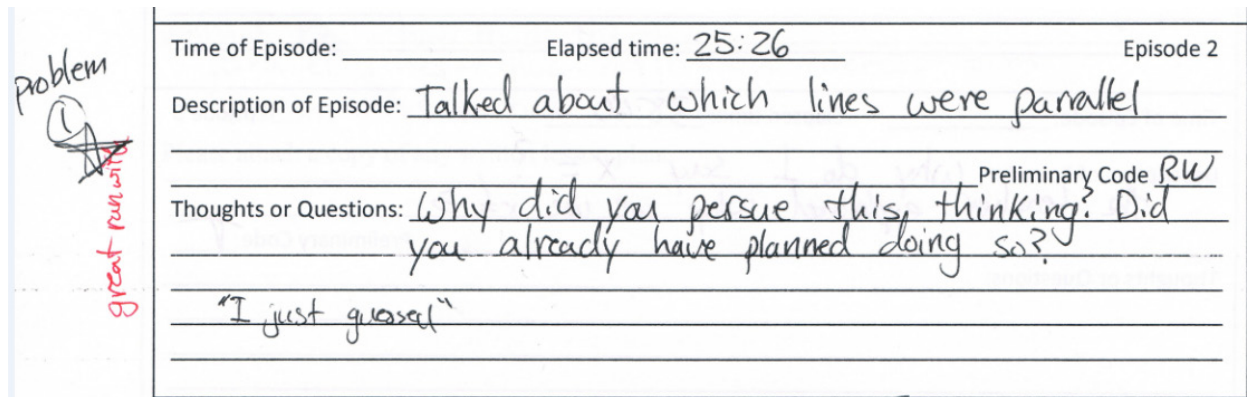 problem
1
great run with
Time of Episode: Elapsed time: 25:26 Episode 2
Description of Episode: Talked about which lines were parrallel
Preliminary Code RW
Thoughts or Questions: Why did you persue this, thinking? Did
you already have planned doing so?
"I just guessed"